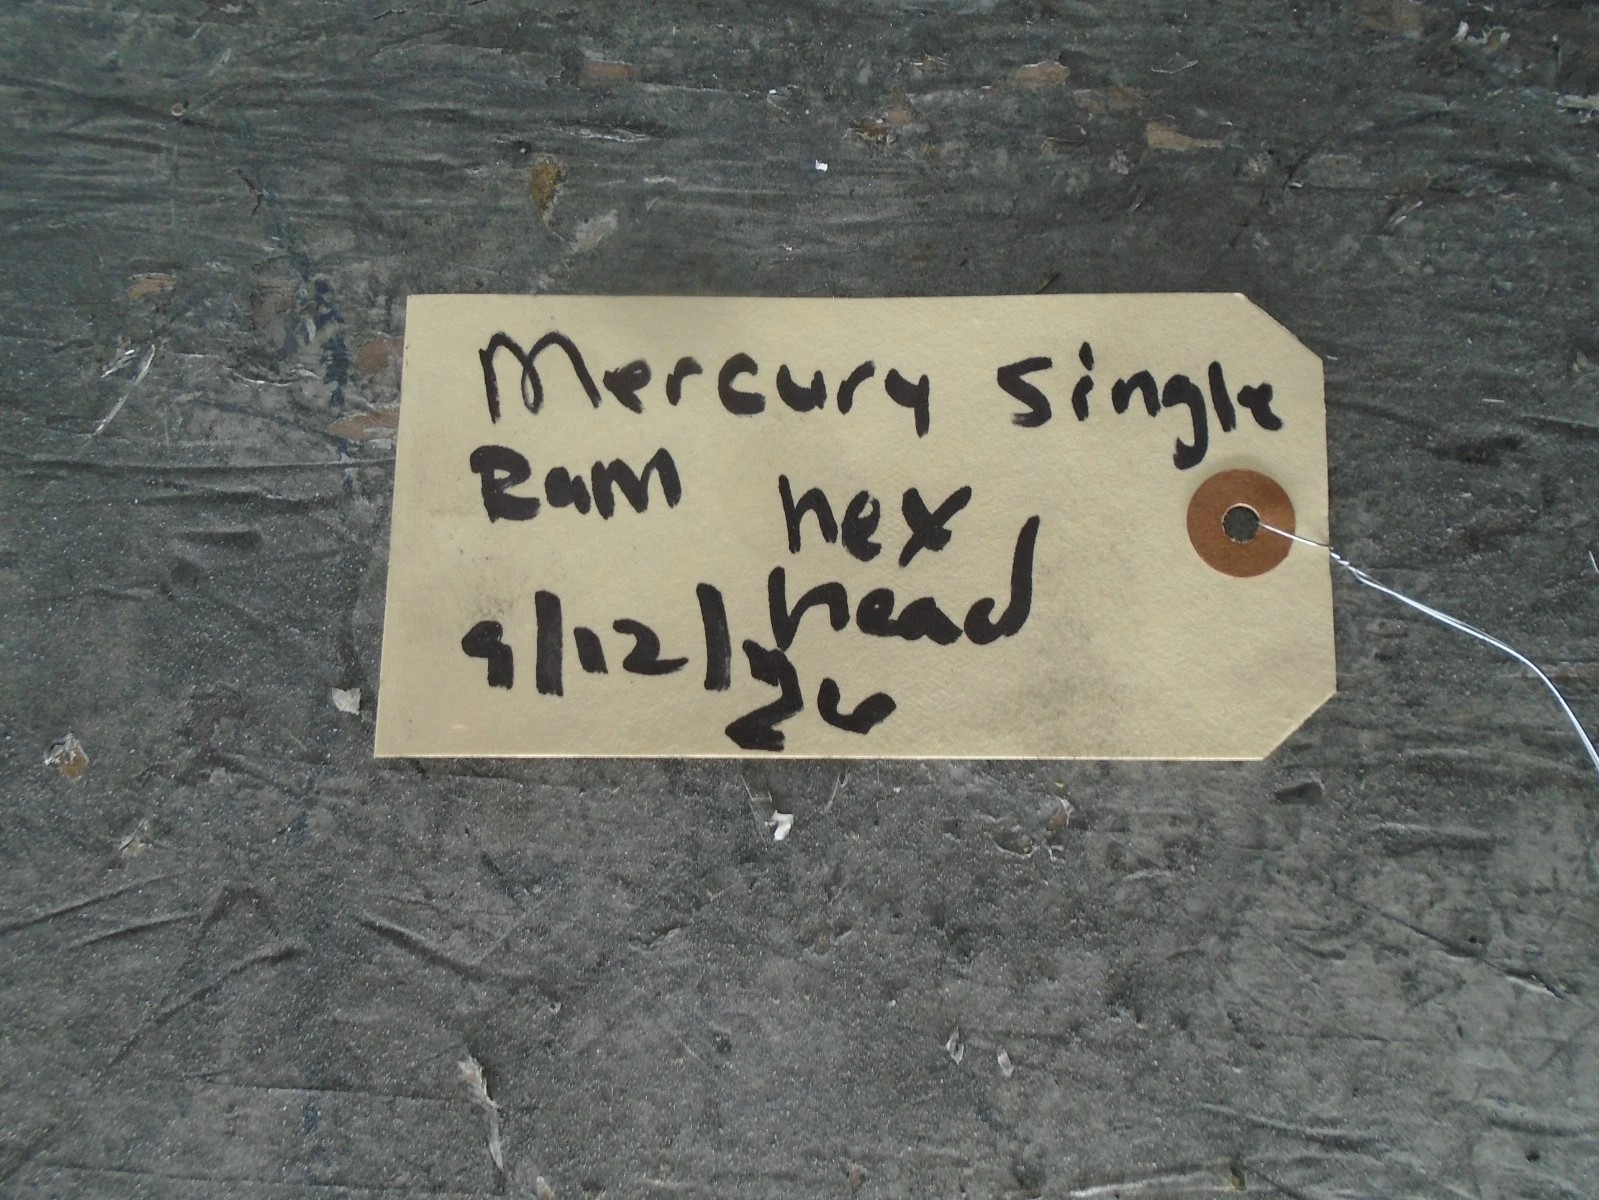 Mercury Single
Ram hex
head
9/12/
26